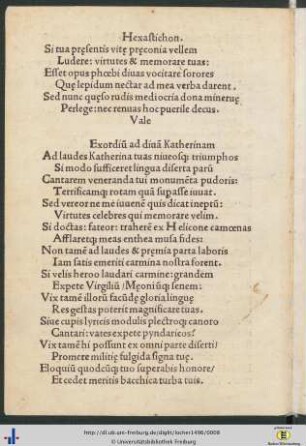 Hexastichon.
Si tua pręsentis vitę pręconia vellem
Ludere: virtutes & memorare tuas:
Esset opus phœbi diuas vocitare sorores
Quę lepidum nectar ad mea verba darent.
Sed nunc quęso rudis mediocria dona mineruę
Perlege: nec renuas hoc puerile decus.
Vale
Exordiū ad diuā Katherinam
Ad laudes Katherina tuas niueosq; triumphos
Si modo sufficeret lingua diserta parū
Cantarem veneranda tui monumēta pudoris:
Terrificamq; rotam quā supasse iuuat.
Sed vereor ne me iuuenē quis dicat ineptū:
Virtutes celebres qui memorare velim.
Si doctas: fateor: traherē ex Helicone camœnas
Afflaretq; meas enthea musa fides:
Non tamē ad laudes & pręmia parta laboris
Iam satis emeriti carmina nostra forent.
Si velis heroo laudari carmine: grandem
Expete Virgiliū / Męoniūq; senem:
Vix tamē illorū facūdę gloria linguę
Res gestas poterit magnificare tuas.
Siue cupis lyricis modulis plectroq; canoro
Cantari: vates expete pyndaricos:
Vix tamē hi possunt ex omni parte diserti /
Promere militię fulgida signa tuę.
Eloquiū quodcūq; tuo superabis honore /
Et cedet meritis bacchica turba tuis.
http://dl.ub.uni-freiburg.de/diglit/locher1496/0008
© Universitätsbibliothek Freiburg